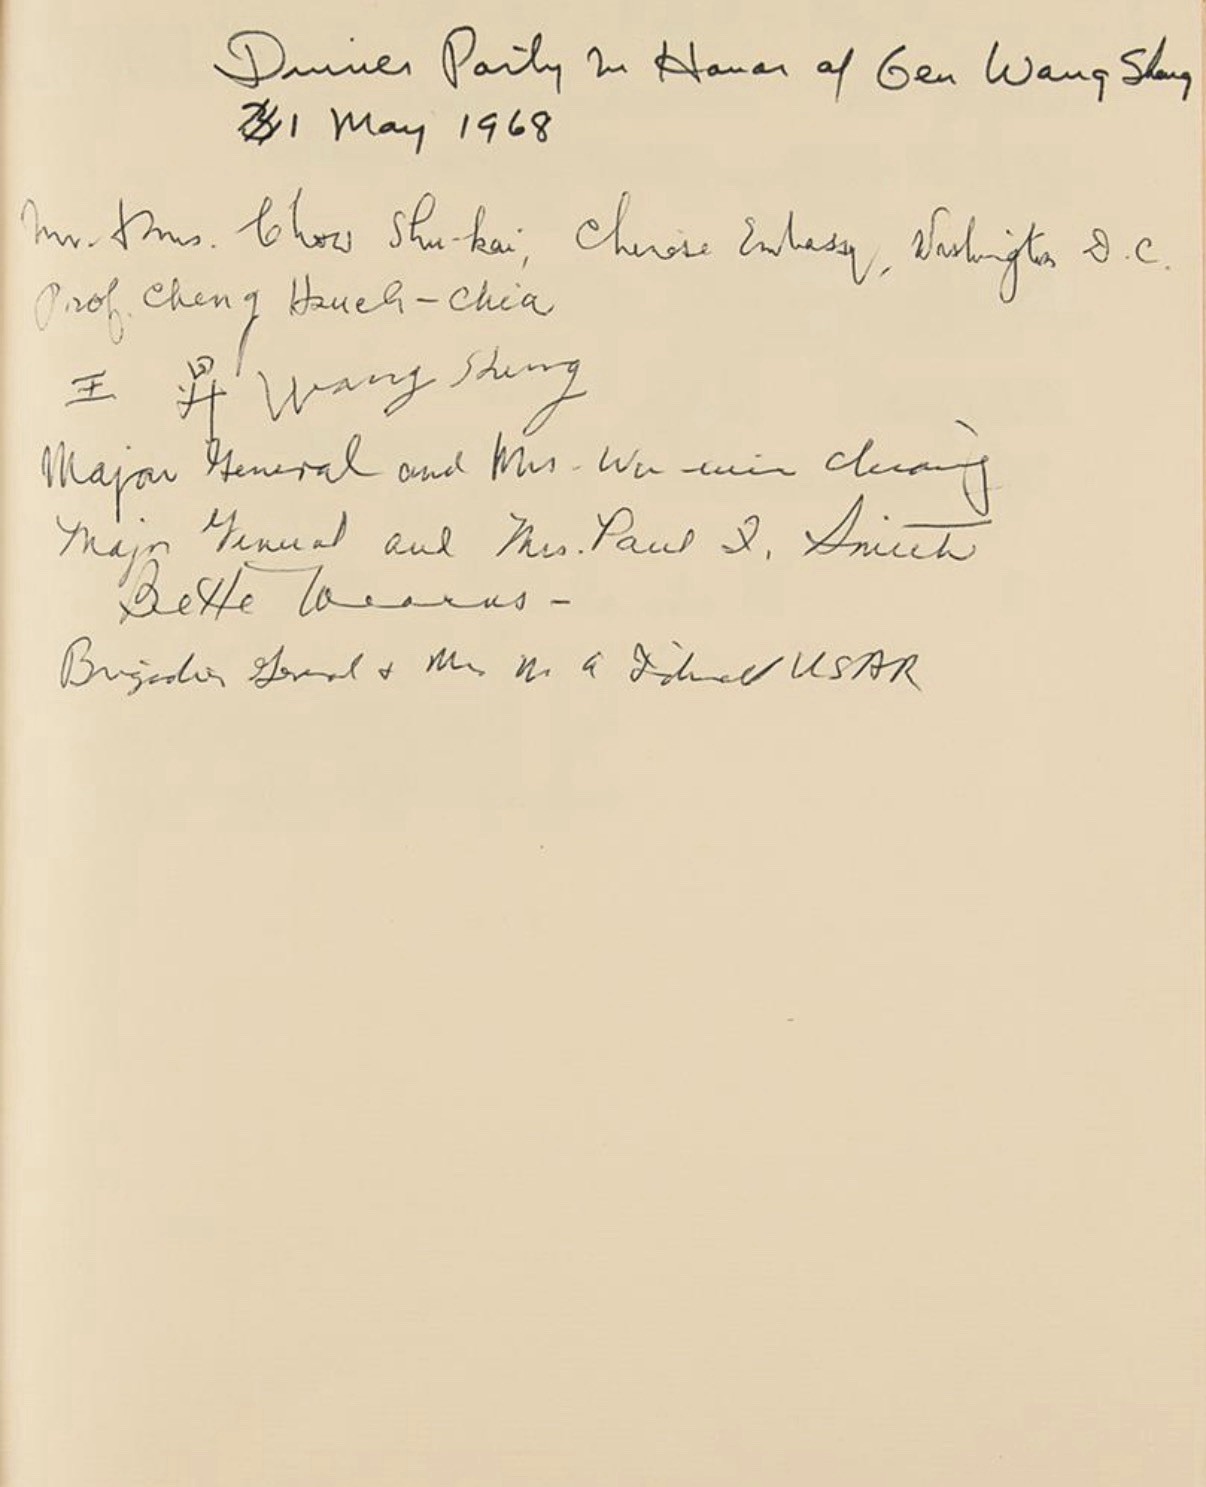 Dinner Party In Honor of Gen Wang Sheng
31 May 1968
Mr. & Mrs. Chow Shu-kai, Chinese Embassy, Washington D.C.
Prof. Cheng Hsueh-Chia
王 昇 Wang Sheng
Major General and Mrs. Wu-min Chiang
Major General and Mrs. Paul Smith
Bette
Brigadier General & Mrs USAR